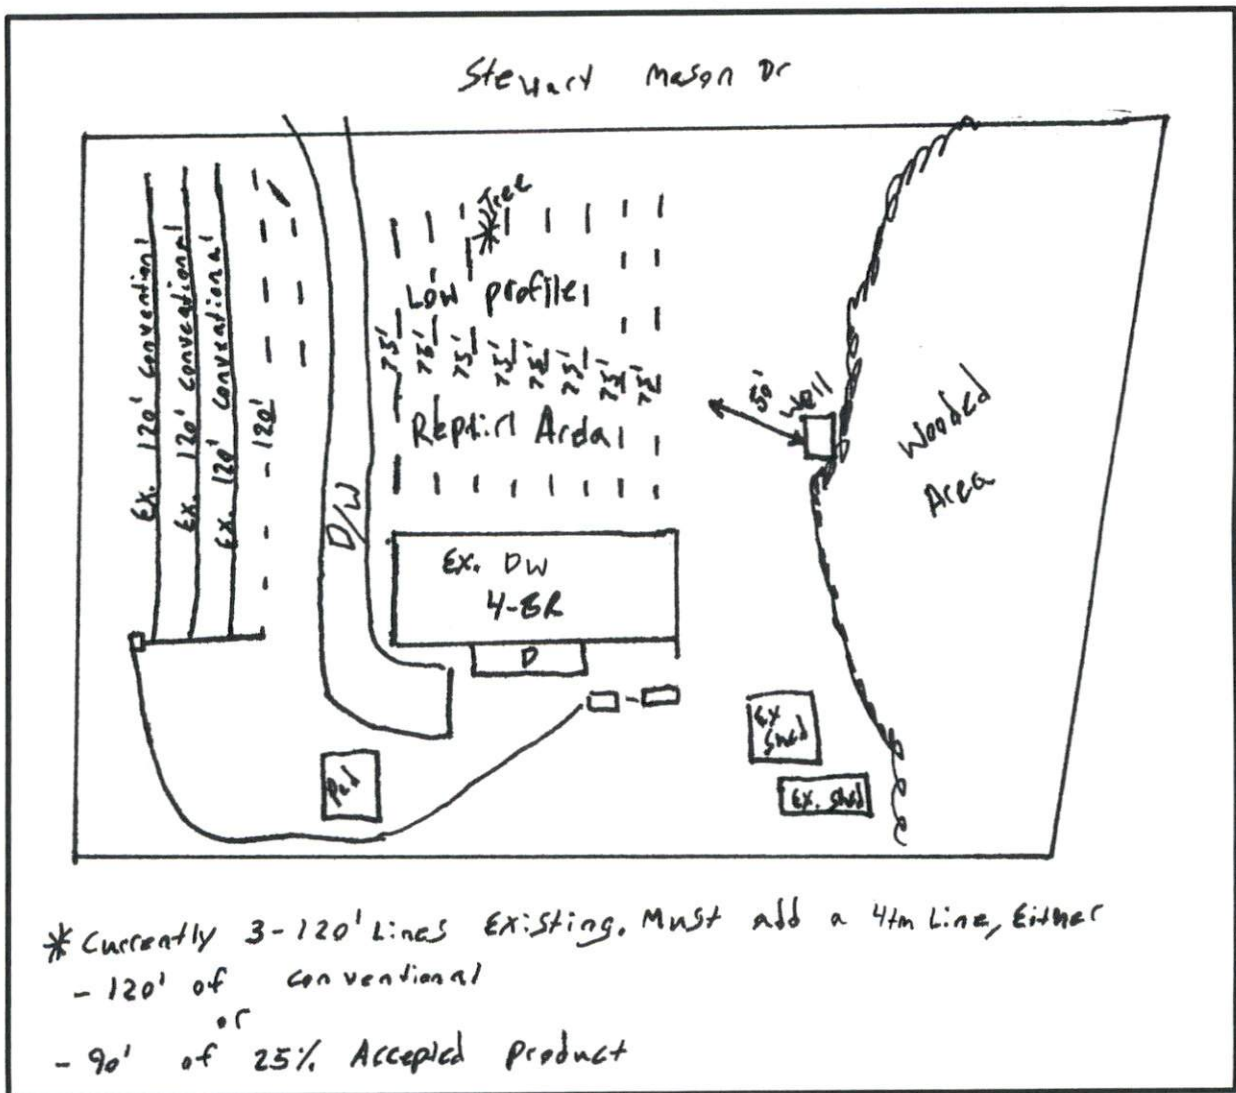 Stewart Mason Dr
Tree
Ex. 120' conventional
Ex. 120' conventional
Ex. 120' conventional
- 120'
Low profile
75' 75' 75' 75' 75' 75' 75' 75'
Area
50'
Well
Wooded
Area
D/W
Ex. DW
4-BR
D
Pad
Ex
Shed
Ex. Shed
* Currently 3-120' Lines Existing. Must add a 4th Line, Either
- 120' of conventional
or
- 90' of 25% Accepted product